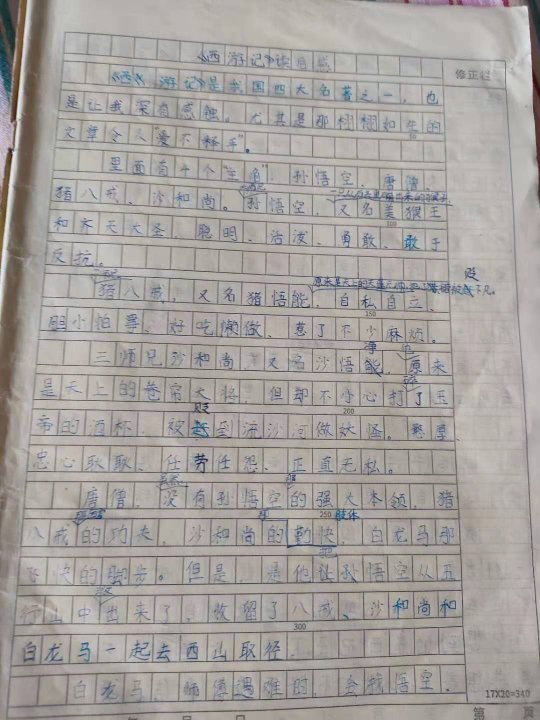 《西游记》读后感
修正栏
《西 游记》是我国四大名著之一，也
是让我深有感触。尤其是那栩栩如生的
文章令人“爱不释手”。
里面有4个“主角”：孙悟空、唐僧、
猪八戒、沙和尚。孙悟空，又名美猴王
100
和齐天大圣，聪明、活泼、勇敢、敢于
反抗。
贬
猪八戒，又名猪悟能，自私自立、
150
胆小怕事、好吃懒做，惹了不少麻烦。
净
三师兄沙和尚，又名沙悟能，原来
是天上的卷帘大将，但却不小心打了玉
贬
200
帝的酒杯，被 到流沙河做妖怪。憨厚、
忠心耿耿、任劳任怨、正直无私。
唐僧，没有孙悟空的强大本领，猪
250
八戒的功夫，沙和尚的勤快，白龙马那
飞快的脚步。但是，是他让孙悟空从五
行山中出来了，收留了八戒、沙和尚和
300
白龙马一起去西山取经。
白龙马，师傅遇难时，会找悟空
17X20=340
第 页